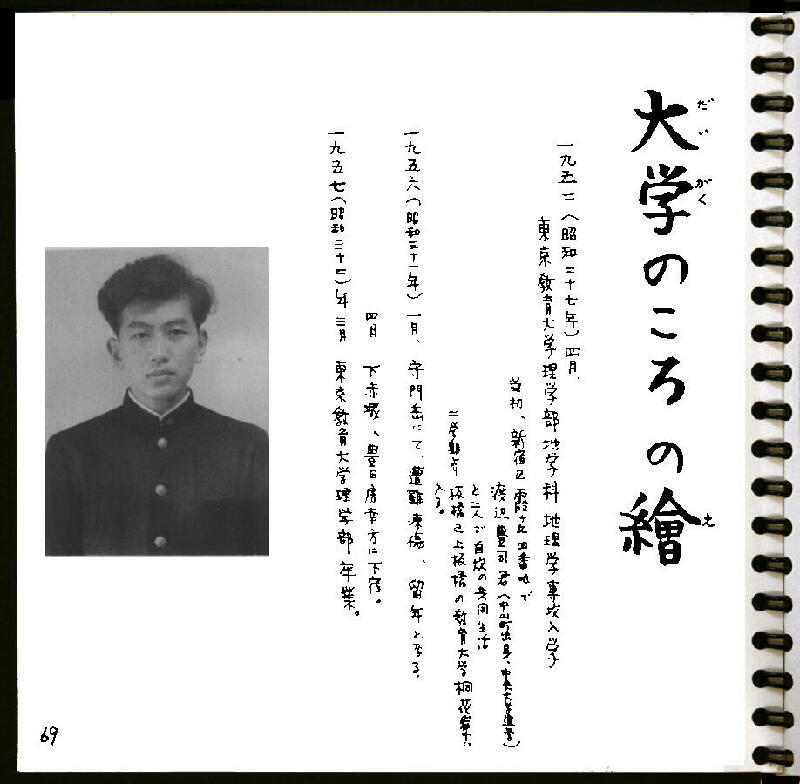 大学のころの繪
だいがく
え
一九五二(昭和二十七年)四月、
東京教育大学理学部地学科 地理学専攻入学
当初、新宿区霞ヶ丘四番地で
渡辺豊司君(中山町出身、中央大学進学)
と二人で自炊の共同生活
二学期より 板橋区上板橋の教育大学桐花寮に
入る。
一九五六(昭和三十一年)一月、守門岳にて、遭難凍傷、留年となる。
四月 下赤塚、豊田房幸方に下宿。
一九五七(昭和三十二)年三月 東京教育大学理学部卒業。
69